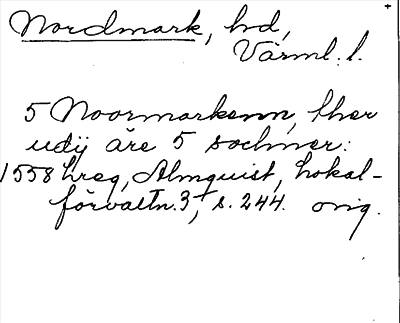 Nordmark, hd,
Värml. l.
5 Noormarkenn, ther
udij äre 5 sochner:
1558 hreg, Almquist, Lokal-
förvaltn. 3, s. 244. orig.